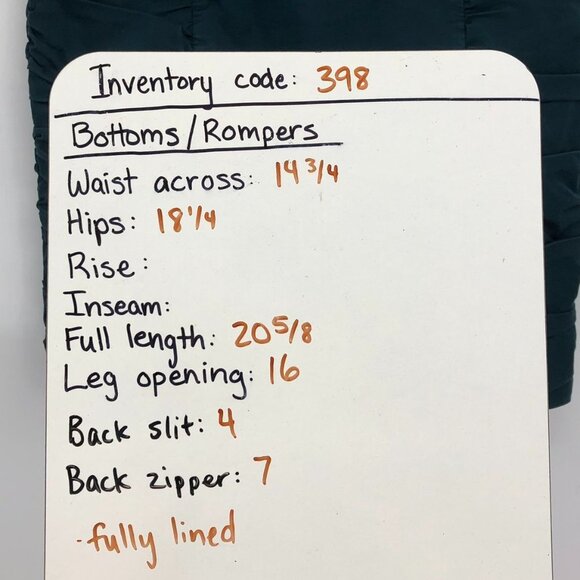 Inventory code: 398
Bottoms/Rompers
Waist across: 14 3/4
Hips: 18 1/4
Rise:
Inseam:
Full length: 20 5/8
Leg opening: 16
Back slit: 4
Back zipper: 7
-fully lined